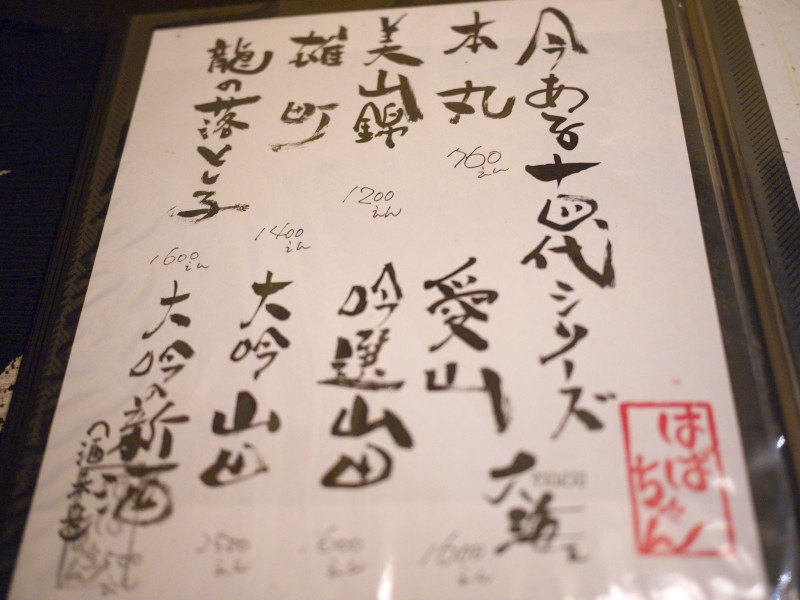 今ある十四代シリーズ
本丸
760えん
美山錦
1200えん
雄町
1400えん
龍の落とし子
1600えん
愛山
1600えん
吟選山田
大吟山田
2500えん
大吟の新酒
はばちゃん